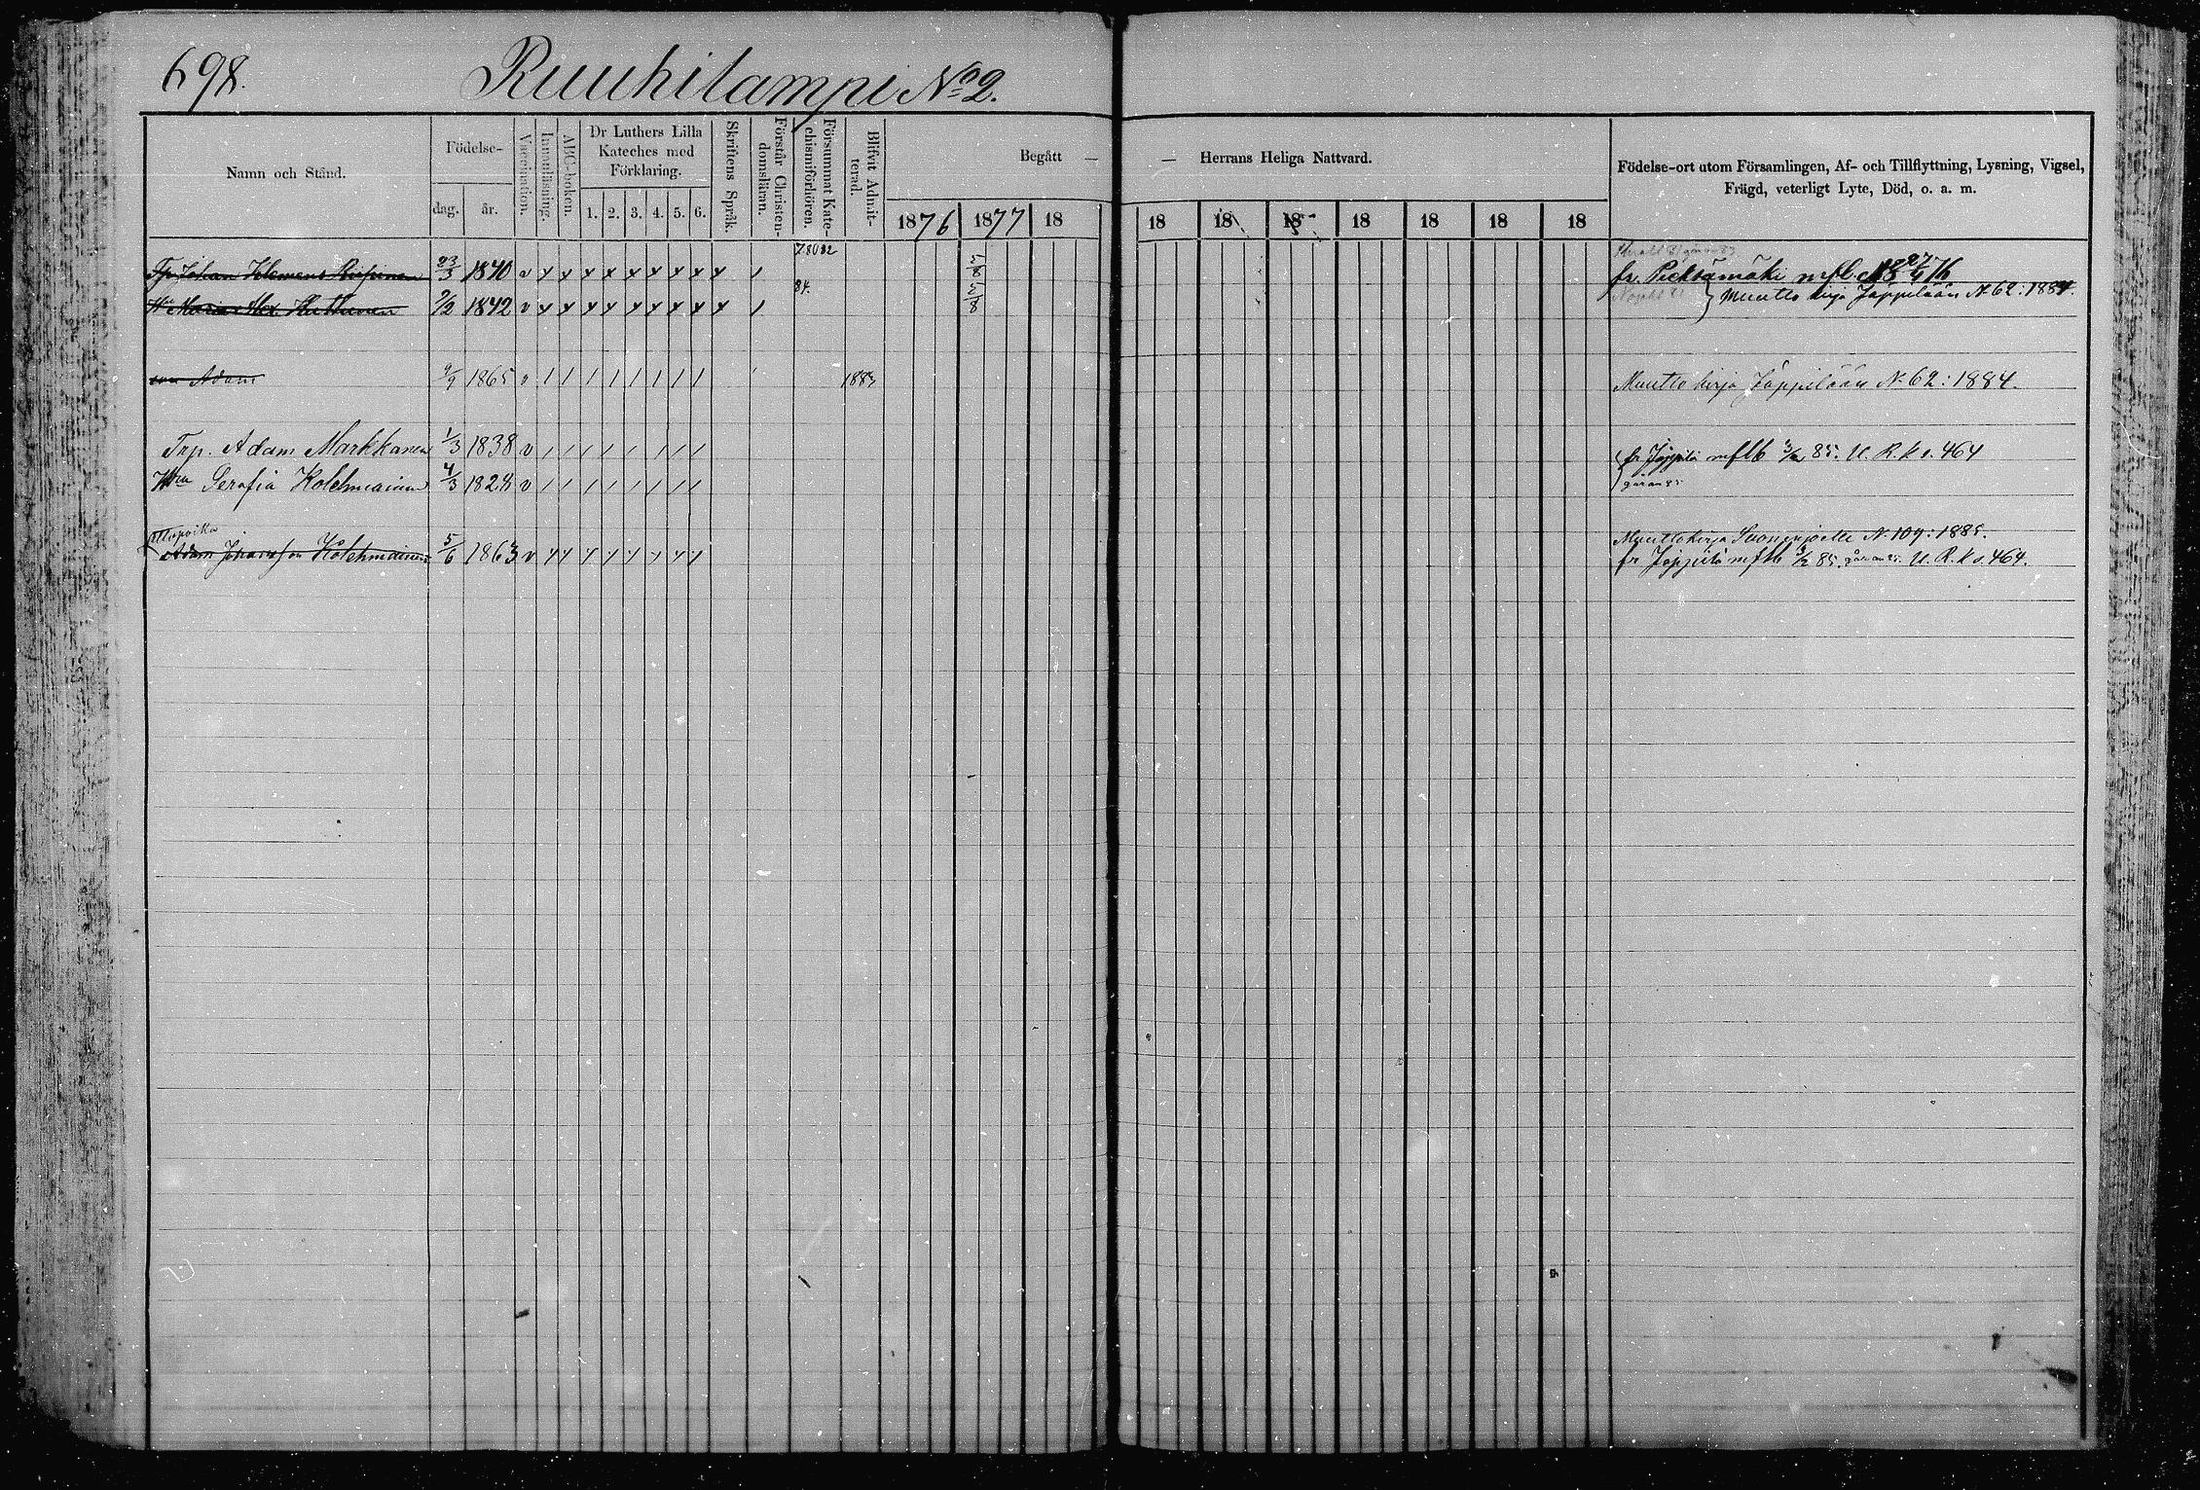 698.
Ruuhilampi No 2.
Namn och Stånd.
Födelse-
dag.
år.
Vaccination.
Innanläsning.
ABC-boken.
Dr Luthers Lilla
Kateches med
Förklaring.
1. 2. 3. 4. 5. 6.
Skriftens Språk.
Förstår Christen-
domsläran.
Försummat Kate-
chismiförhören.
Blifvit Admit-
terad.
Begått —
— Herrans Heliga Nattvard.
1876 1877 18 18 18 18 18 18 18 18
Födelse-ort utom Församlingen, Af- och Tillflyttning, Lysning, Vigsel,
Frägd, veterligt Lyte, Död, o. a. m.
Johan Klemens 23/3 1840 v x x x x x x x x x / 5/8 fr. Pieksämäki mfb
Maria 9/2 1842 v x x x x x x x x x / 84. 5/8 Muutto kirja Jäppilään N. 62: 1884.
son Adam 9/9 1865 v / / / / / / / / 1883 Muutto kirja Jäppilään N. 62: 1884.
Trp. Adam Markkanen 1/3 1838 v / / / / / / / / fr Jäppilä mftb 3/2 85. U. R. k s. 464
Hru Serafia Kolehmainen 4/3 1824 v / / / / / / / /
Ottopoika Muuttokirja Suonenjoelle N. 109: 1885.
Adam Johansson Kolehmainen 5/6 1863 v x x x x x x x x fr Jäppilä mftb 3/2 85. U. R. k s. 464.